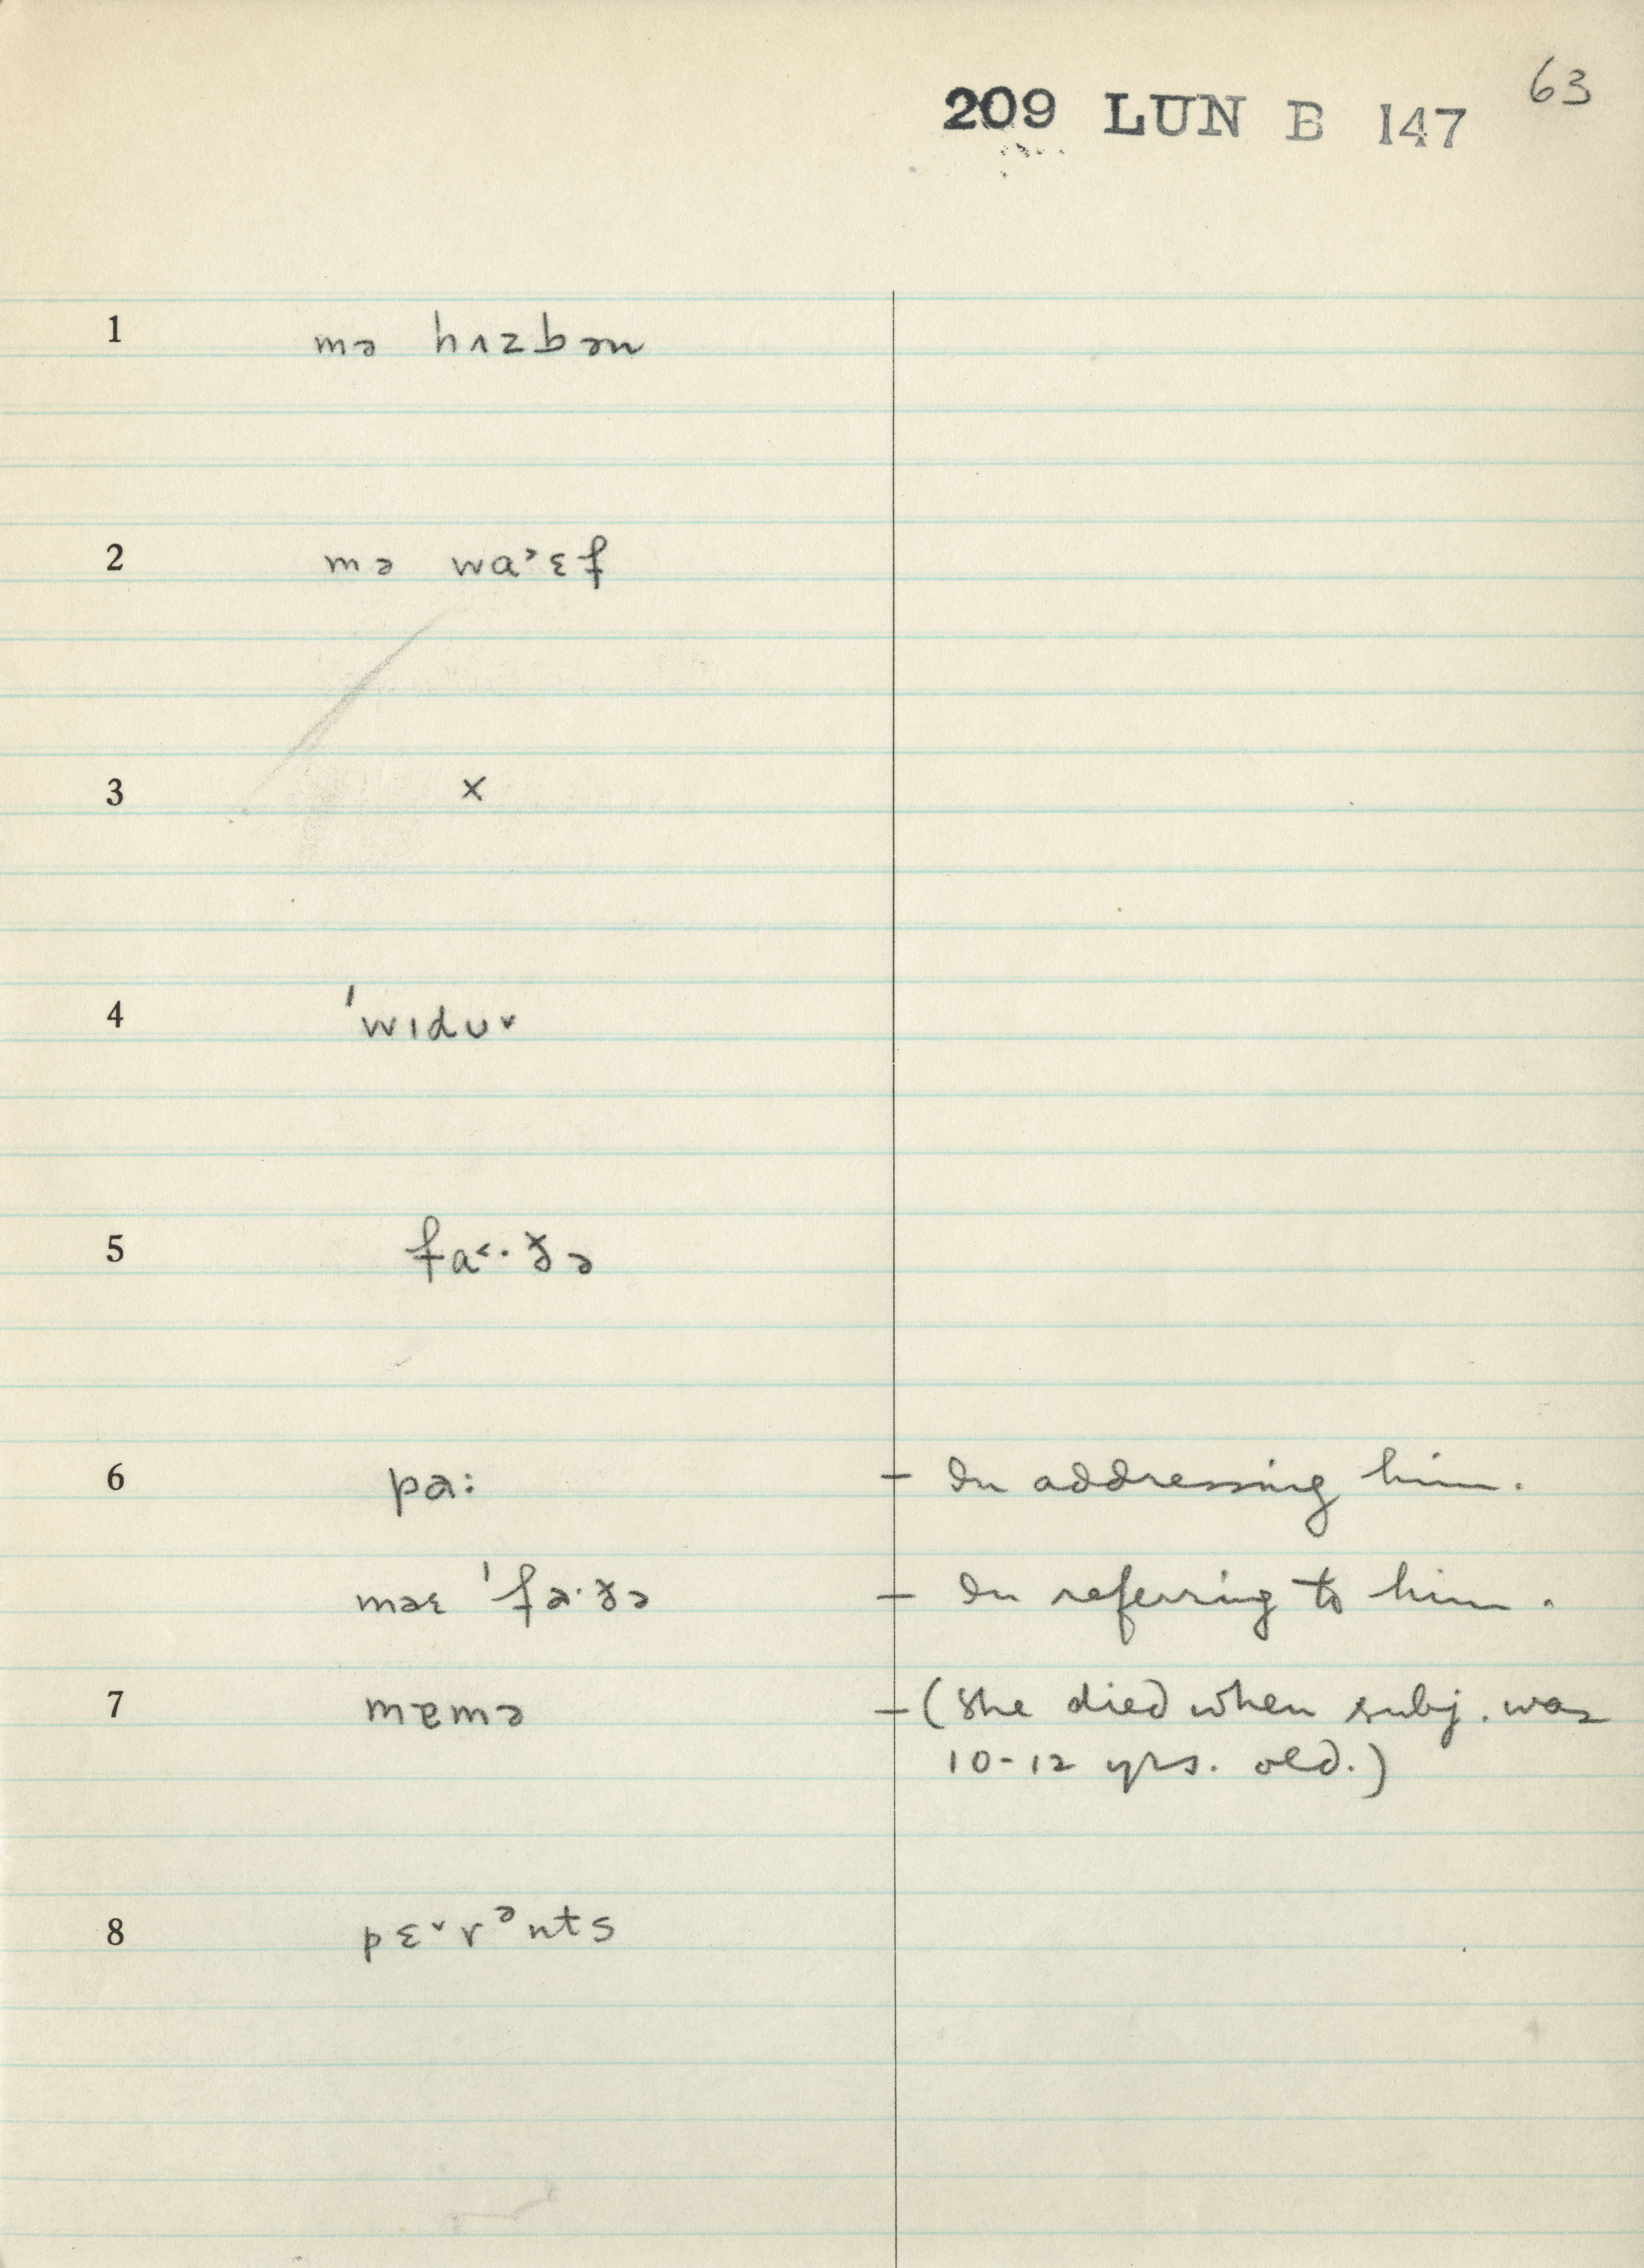 63
209 LUN B 147
1 mə hɪzbən
2 mə wa˃ɛf
3 ×
4 ˈwɪdʊ˅
5 fa˂·ðə
6 pɑ: – In addressing him.
məɛ ˈfɑ·ðə – In referring to him.
7 mɐmə – (She died when subj. was
10-12 yrs. old.)
8 pɛ˅rᵊnts